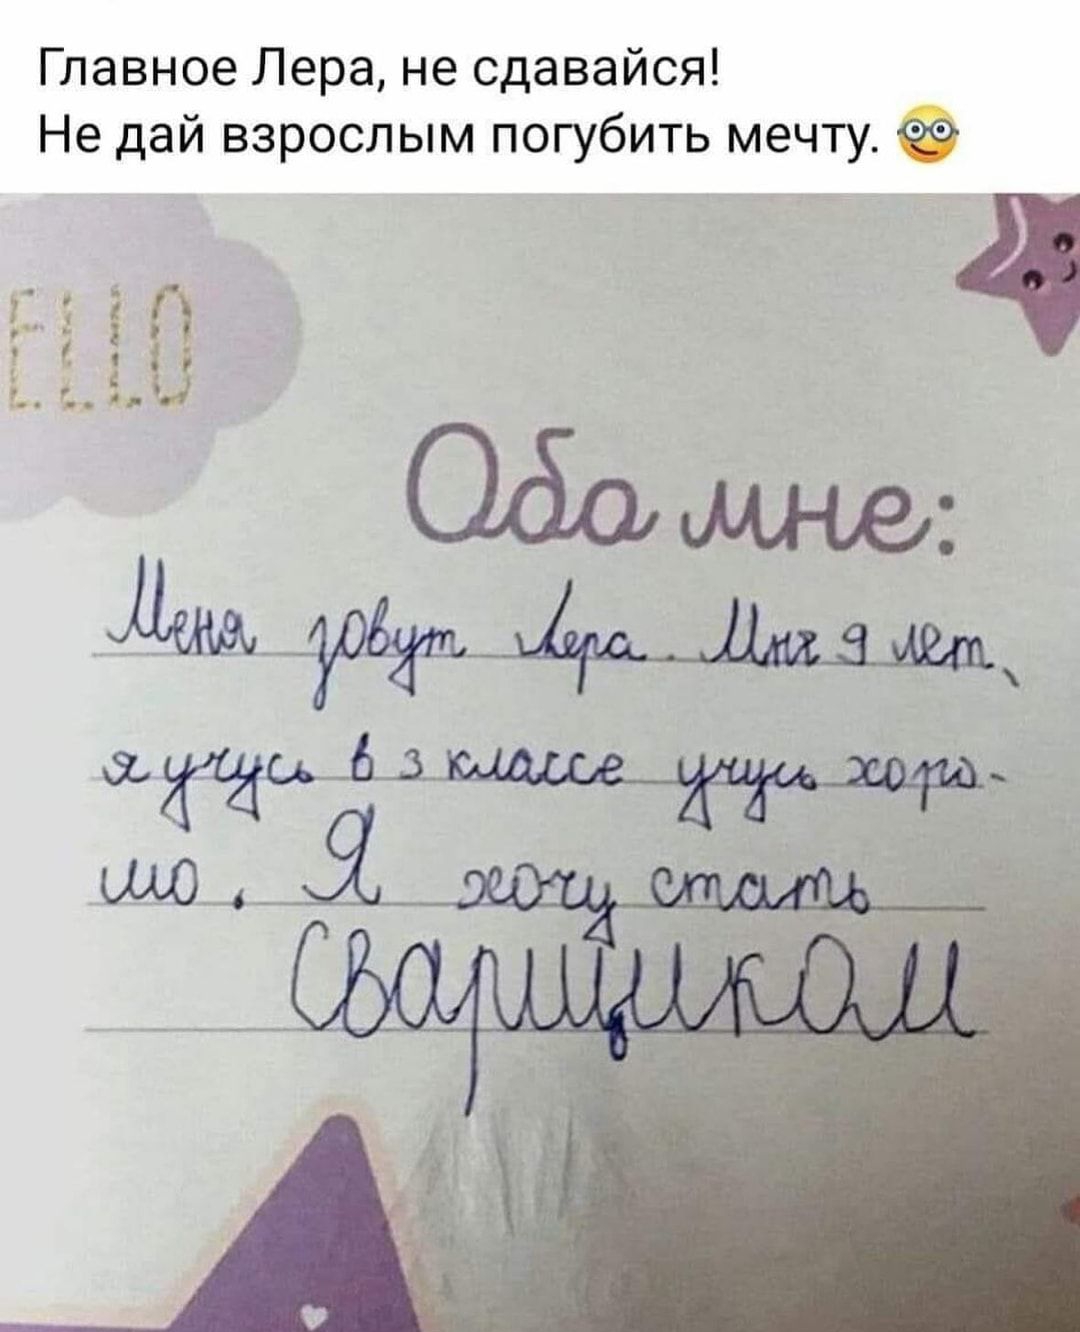 Главное Лера, не сдавайся!
Не дай взрослым погубить мечту. 🤓
ELLO
Оба мне:
Меня зовут Лера. Мне 9 лет,
я учусь в 3 классе учусь хоро-
шо. Я хочу стать
Сварщиком